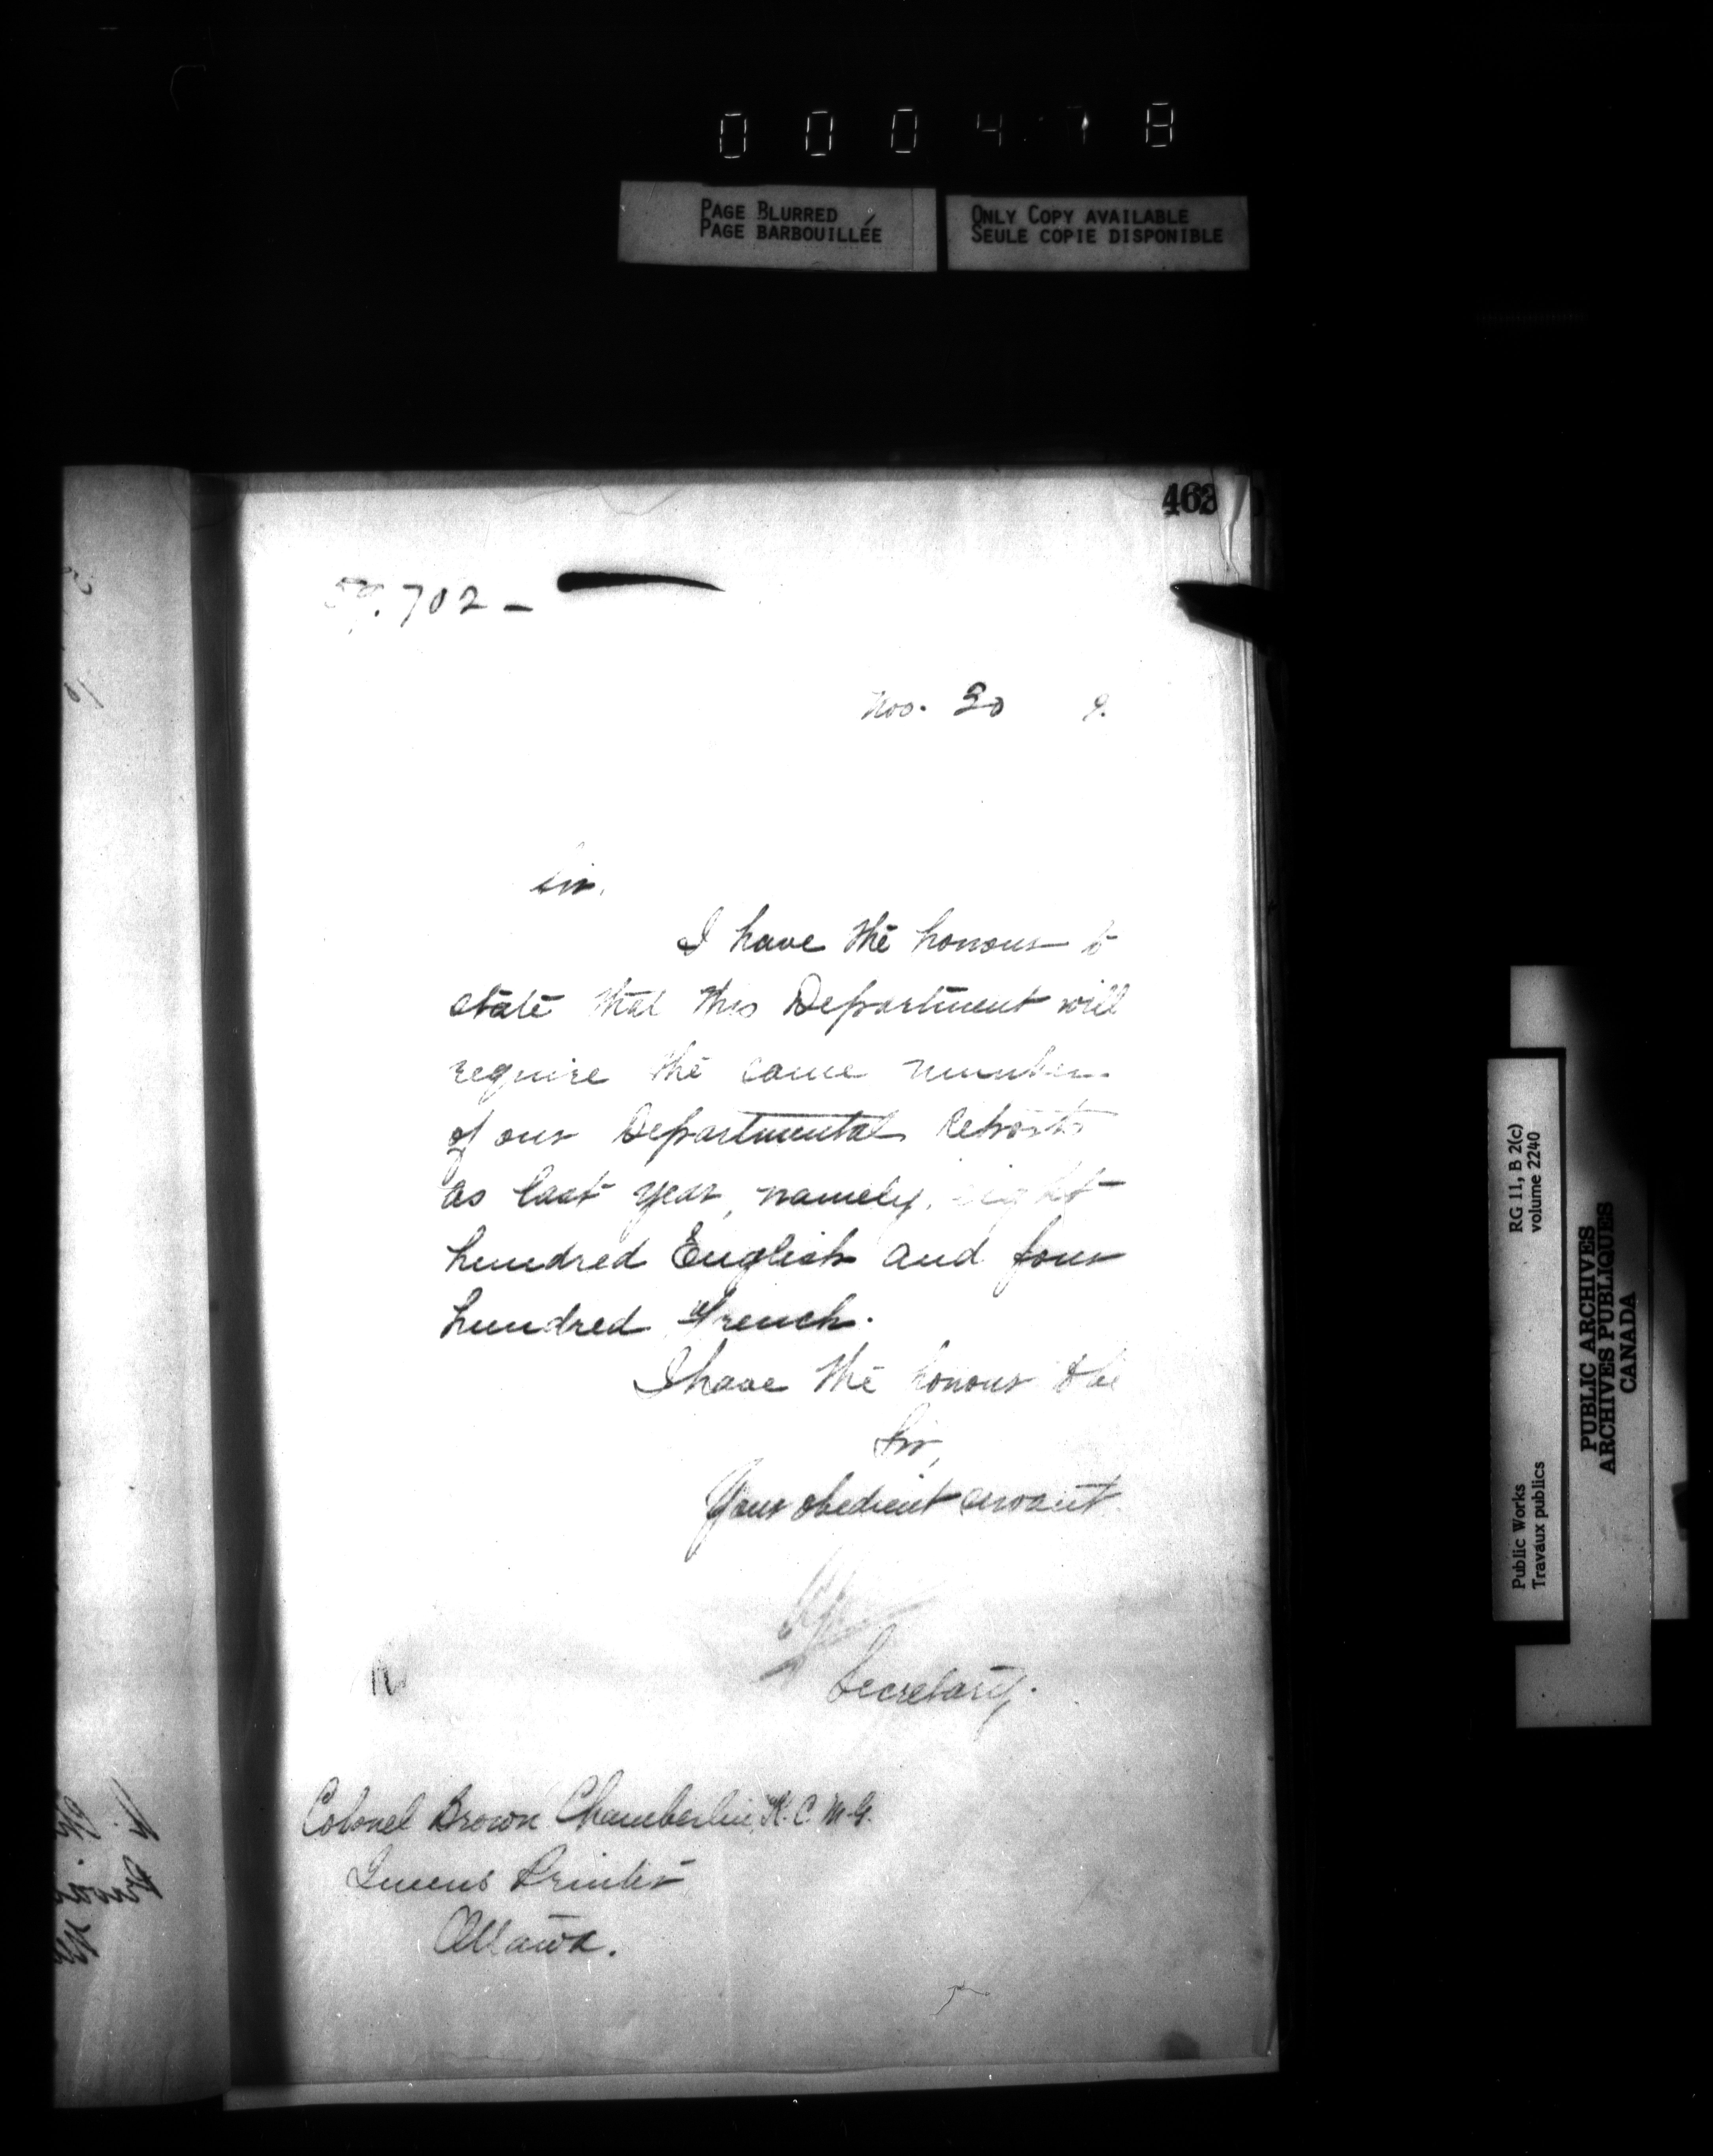 000478
PAGE BLURRED
PAGE BARBOUILLÉE
ONLY COPY AVAILABLE
SEULE COPIE DISPONIBLE
463
59.702 –
Nov. 20 9.
Sir,
I have the honour to
state that this Department will
require the same number
of our Departmental Reports
as last year, namely, eight
hundred English and four
hundred French.
I have the honour to be
Sir,
Your obedient servant
Secretary.
Colonel Brown Chamberlin, K.C.M.G.
Queens Printer
Ottawa.
Public Works
Travaux publics
RG 11, B 2(c)
volume 2240
PUBLIC ARCHIVES
ARCHIVES PUBLIQUES
CANADA